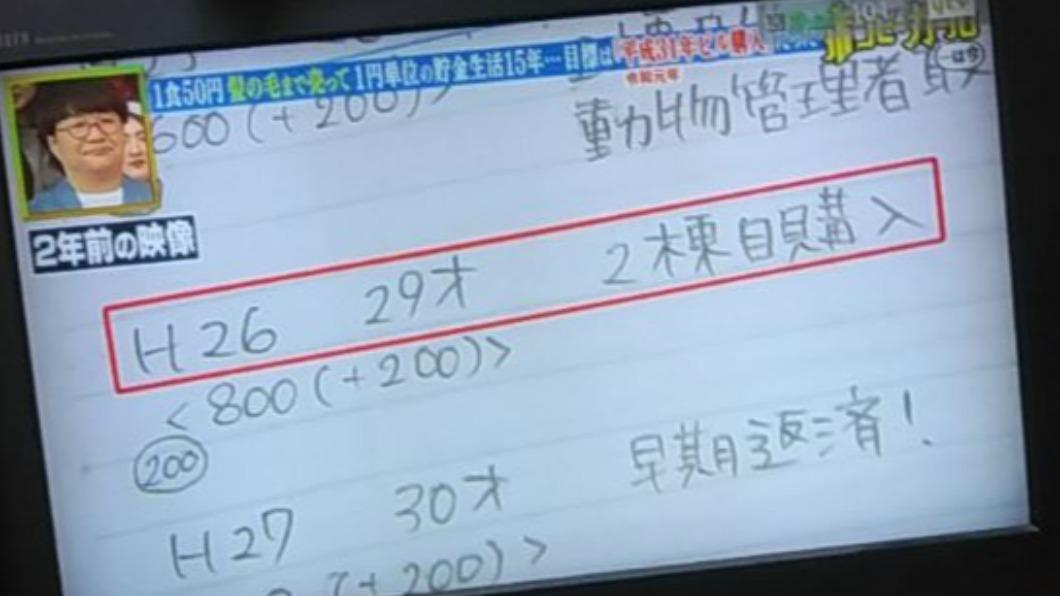 1食50円 髪の毛まで売って 1円単位の貯金生活15年… 目標は 平成31年ビル購入
令和元年
は今
600(+200)>
動物管理者
2年前の映像
H26 29才 2棟目購入
<800(+200)>
200
早期返済!
H27 30才
(+200)>